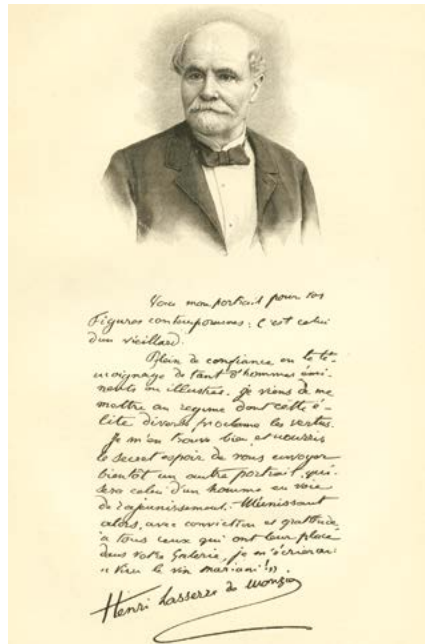 Voici mon portrait pour vos
Figures contemporaines : C'est celui
d'un vieillard.
Plein de confiance en le té-
moignage de tant d'hommes émi-
nents ou illustres, je viens de me
mettre au régime dont cette é-
lite diverse proclame les vertus.
Je m'en trouve bien, et nourris
le secret espoir de vous envoyer
bientôt un autre portrait, qui
sera celui d'un homme en voie
de rajeunissement. M'unissant
alors, avec conviction et gratitude,
à tous ceux qui ont leur place
dans votre Galerie, je m'écrierai
« Vive le vin mariani ! »
Henri Lasserre de Monzie